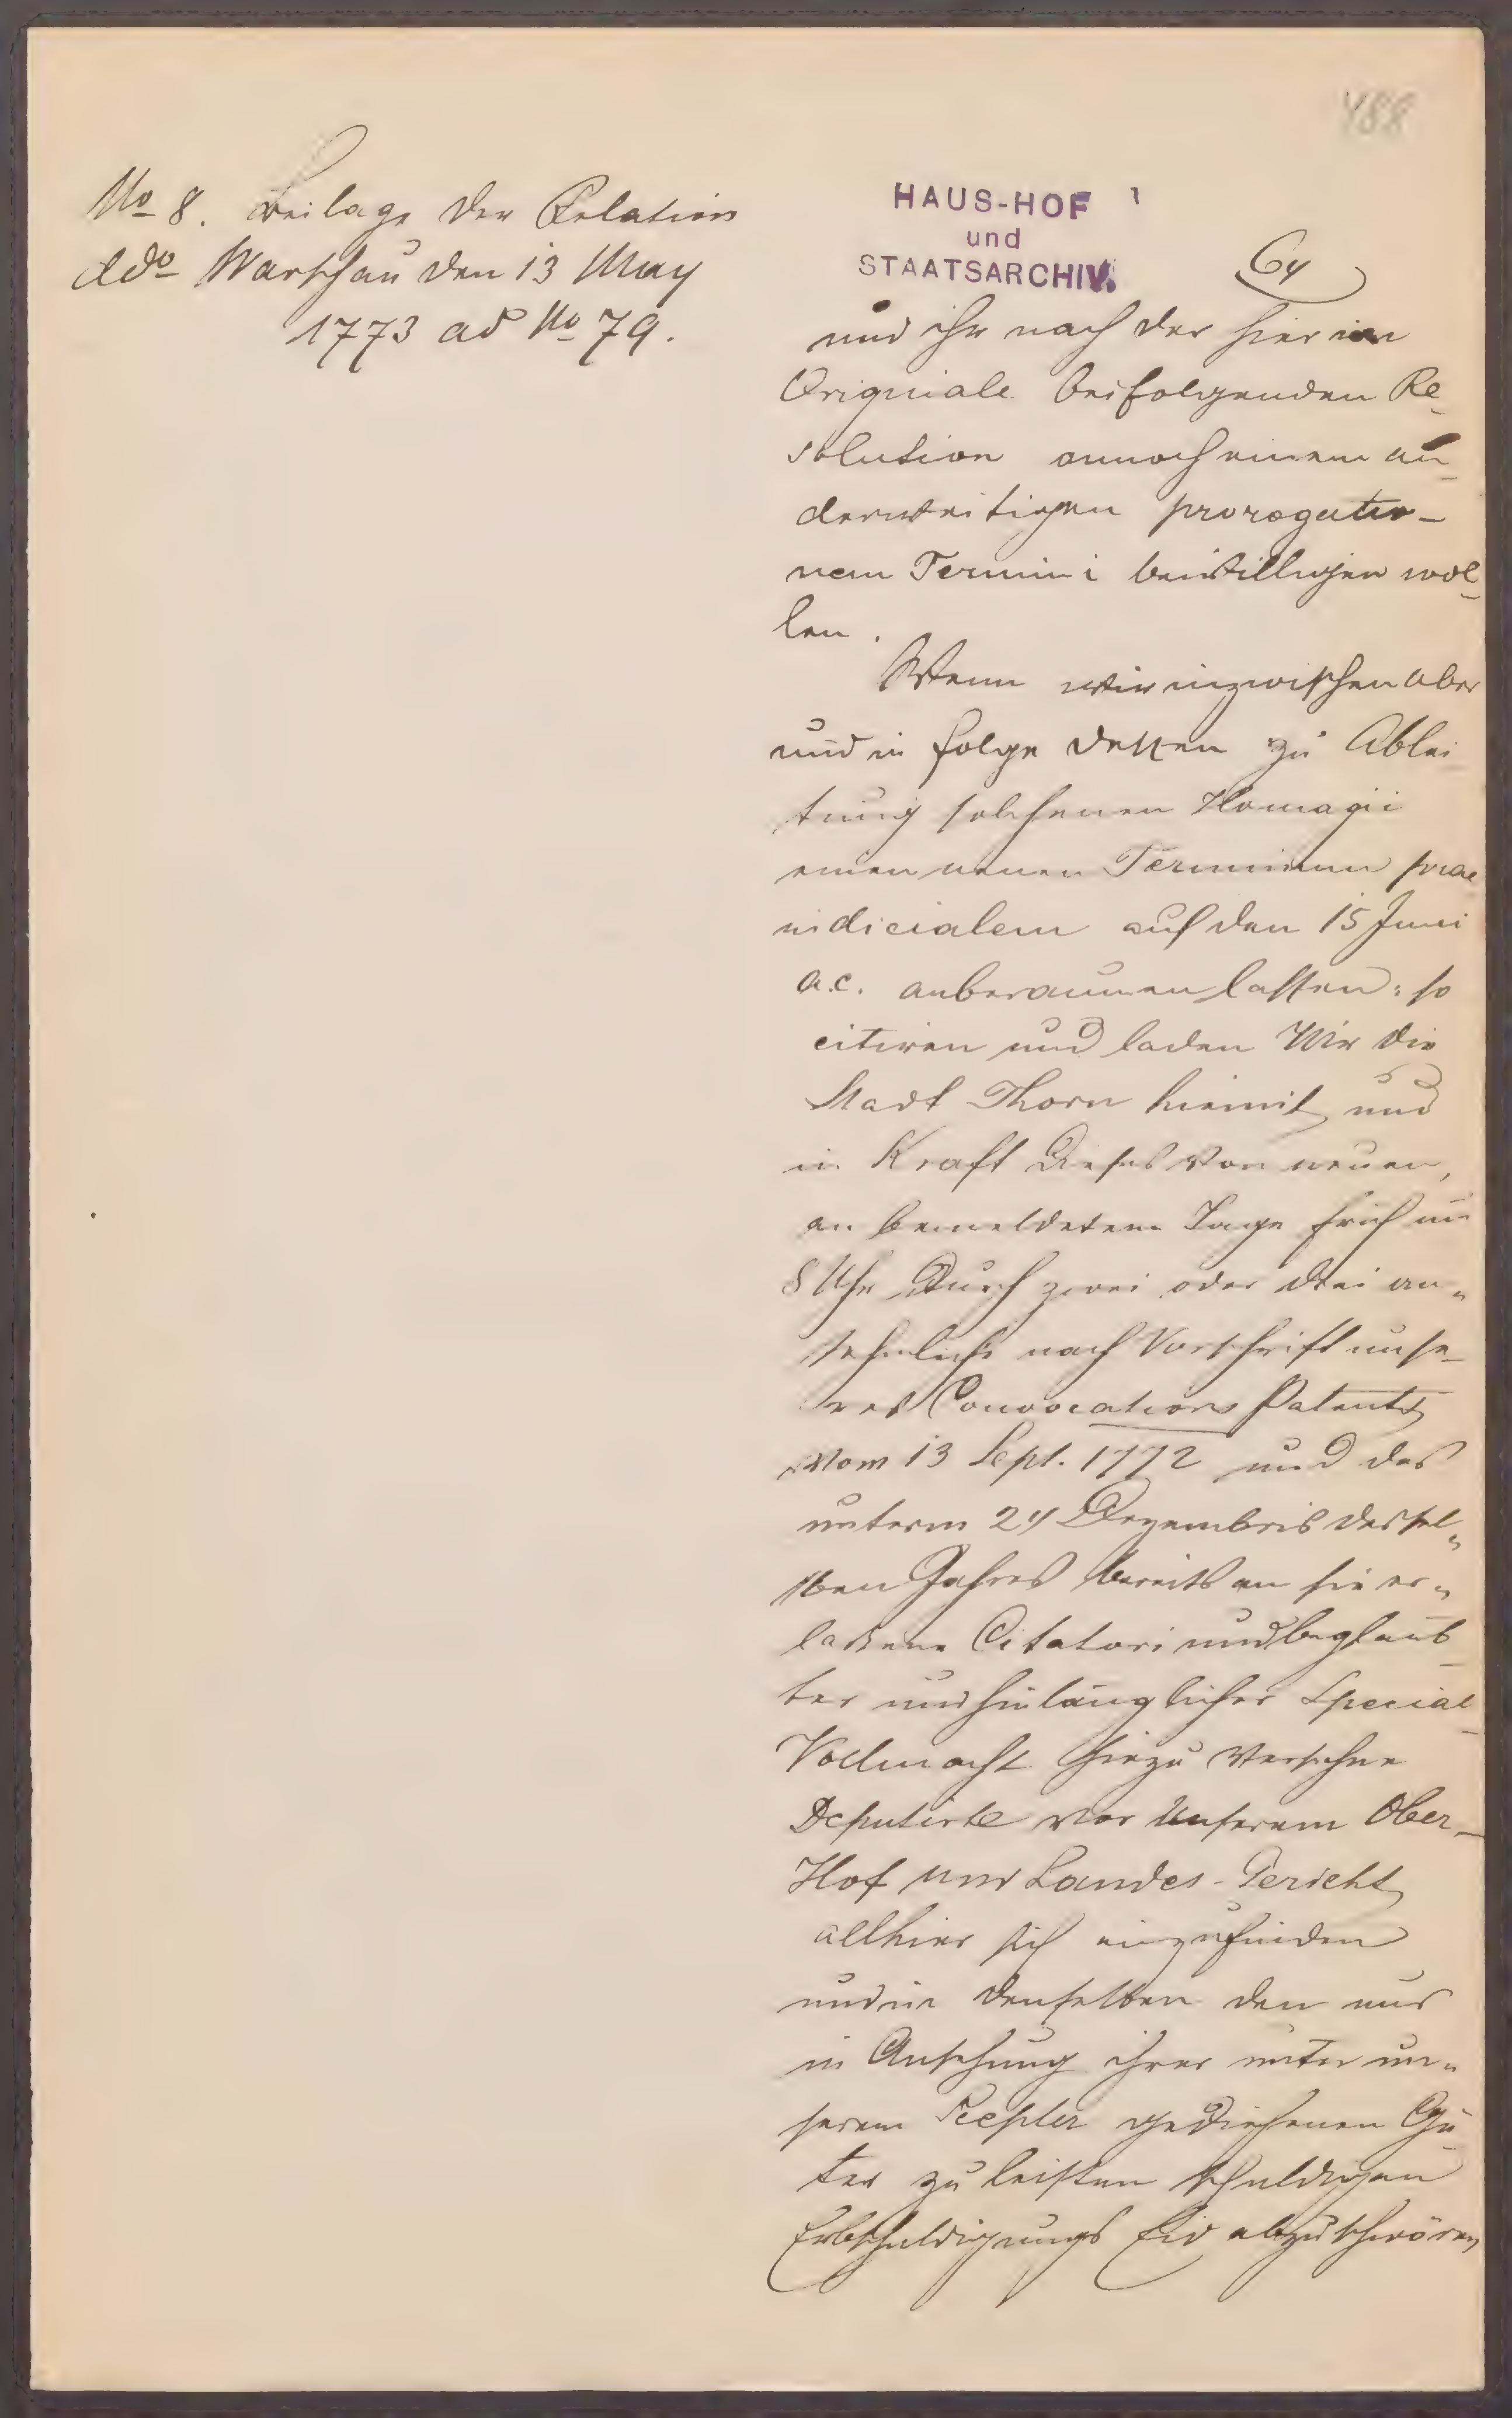 488
No 8. Beilage der Relation
ddo Warschau den 13 May
1773 ad No 79.
HAUS-HOF 1
und
STAATSARCHIV.
64
und ihr nach der hier im
Originale beifolgenden Re-
solution annoch einem an-
derweitigen prorogatio-
nem Termini bewilligen wol-
len.
Wenn wir inzwischen aber
und in Folge dessen zu Ablei-
tung solchenen Homagii
einen neuen Terminum prae
iudicialem auf den 15 Juni
a.c. anberaumen lassen: so
citiren und laden Wir die
Stadt Thorn hiemit und
in Kraft dieses von neuen,
an bemeldetem Tage früh um
8 Uhr durch zwei oder drei an-
sehnliche nach Vorschrift unse-
res Convocations Patents
vom 13 Sept. 1772 und das
unterm 24 Dezembris dessel-
ben Jahres bereits an sie er-
lassene Citatori und beglaub-
ter und hinlänglicher Special-
Vollmacht hiezu versehne
Deputirte vor Unserem Ober-
Hof und Landes-Gericht
allhier sich einzufinden
und in denselben den uns
in Ansehung ihrer unter un-
serem Scepter gediehenen Gü-
ter zu leisten schuldigen
Erbhuldigungs Eid abzuschwören